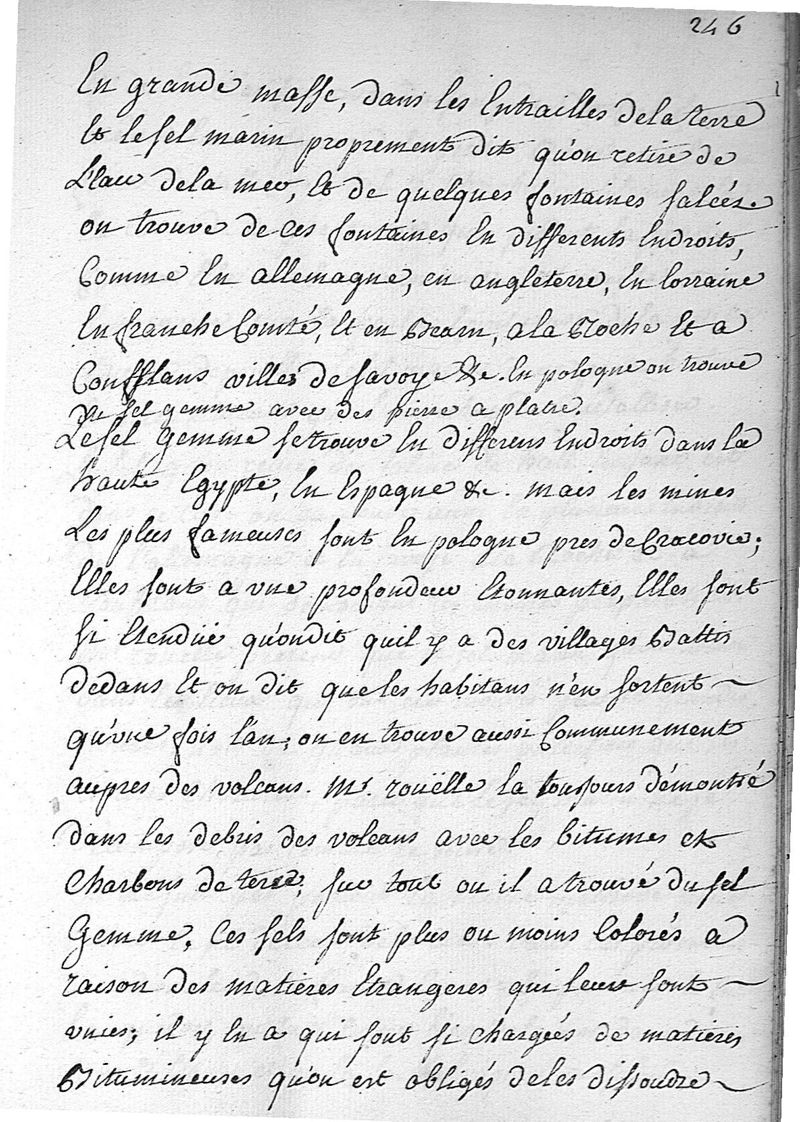 246
En grande masse, dans les Entrailles de la terre
Et le sel marin proprement dit qu'on retire de
L'eau de la mer, Et de quelques fontaines salées.
on trouve de ces fontaines En differents Endroits,
Comme En allemagne, en angleterre, En lorraine
En franche Comté, Et en Bearn, a la Roche Et a
Conflans villes de savoye &c. En pologne on trouve
du sel gemme avec des pierre a platre.
Le sel Gemme se trouve En differens Endroits dans la
haute Egypte, En Espagne &c. mais les mines
Les plus fameuses sont En pologne pres de Cracovie;
Elles sont a une profondeur Etonnantes, Elles sont
si Etendüe qu'on dit quil y a des villages Battis
dedans Et on dit que les habitans n'en sortent
qu'vne fois l'an; on en trouve aussi Communement
aupres des volcans. Mr. rouëlle la toujours démontré
dans les debris des volcans avec les bitumes et
Charbons de terre, sur tout ou il a trouvé du sel
Gemme, Ces sels sont plus ou moins Colorés a
raison des matieres Etrangeres qui leur sont
vnies; il y En a qui sont si chargées de matieres
Bitumineuses qu'on est obligés de les dissoudre